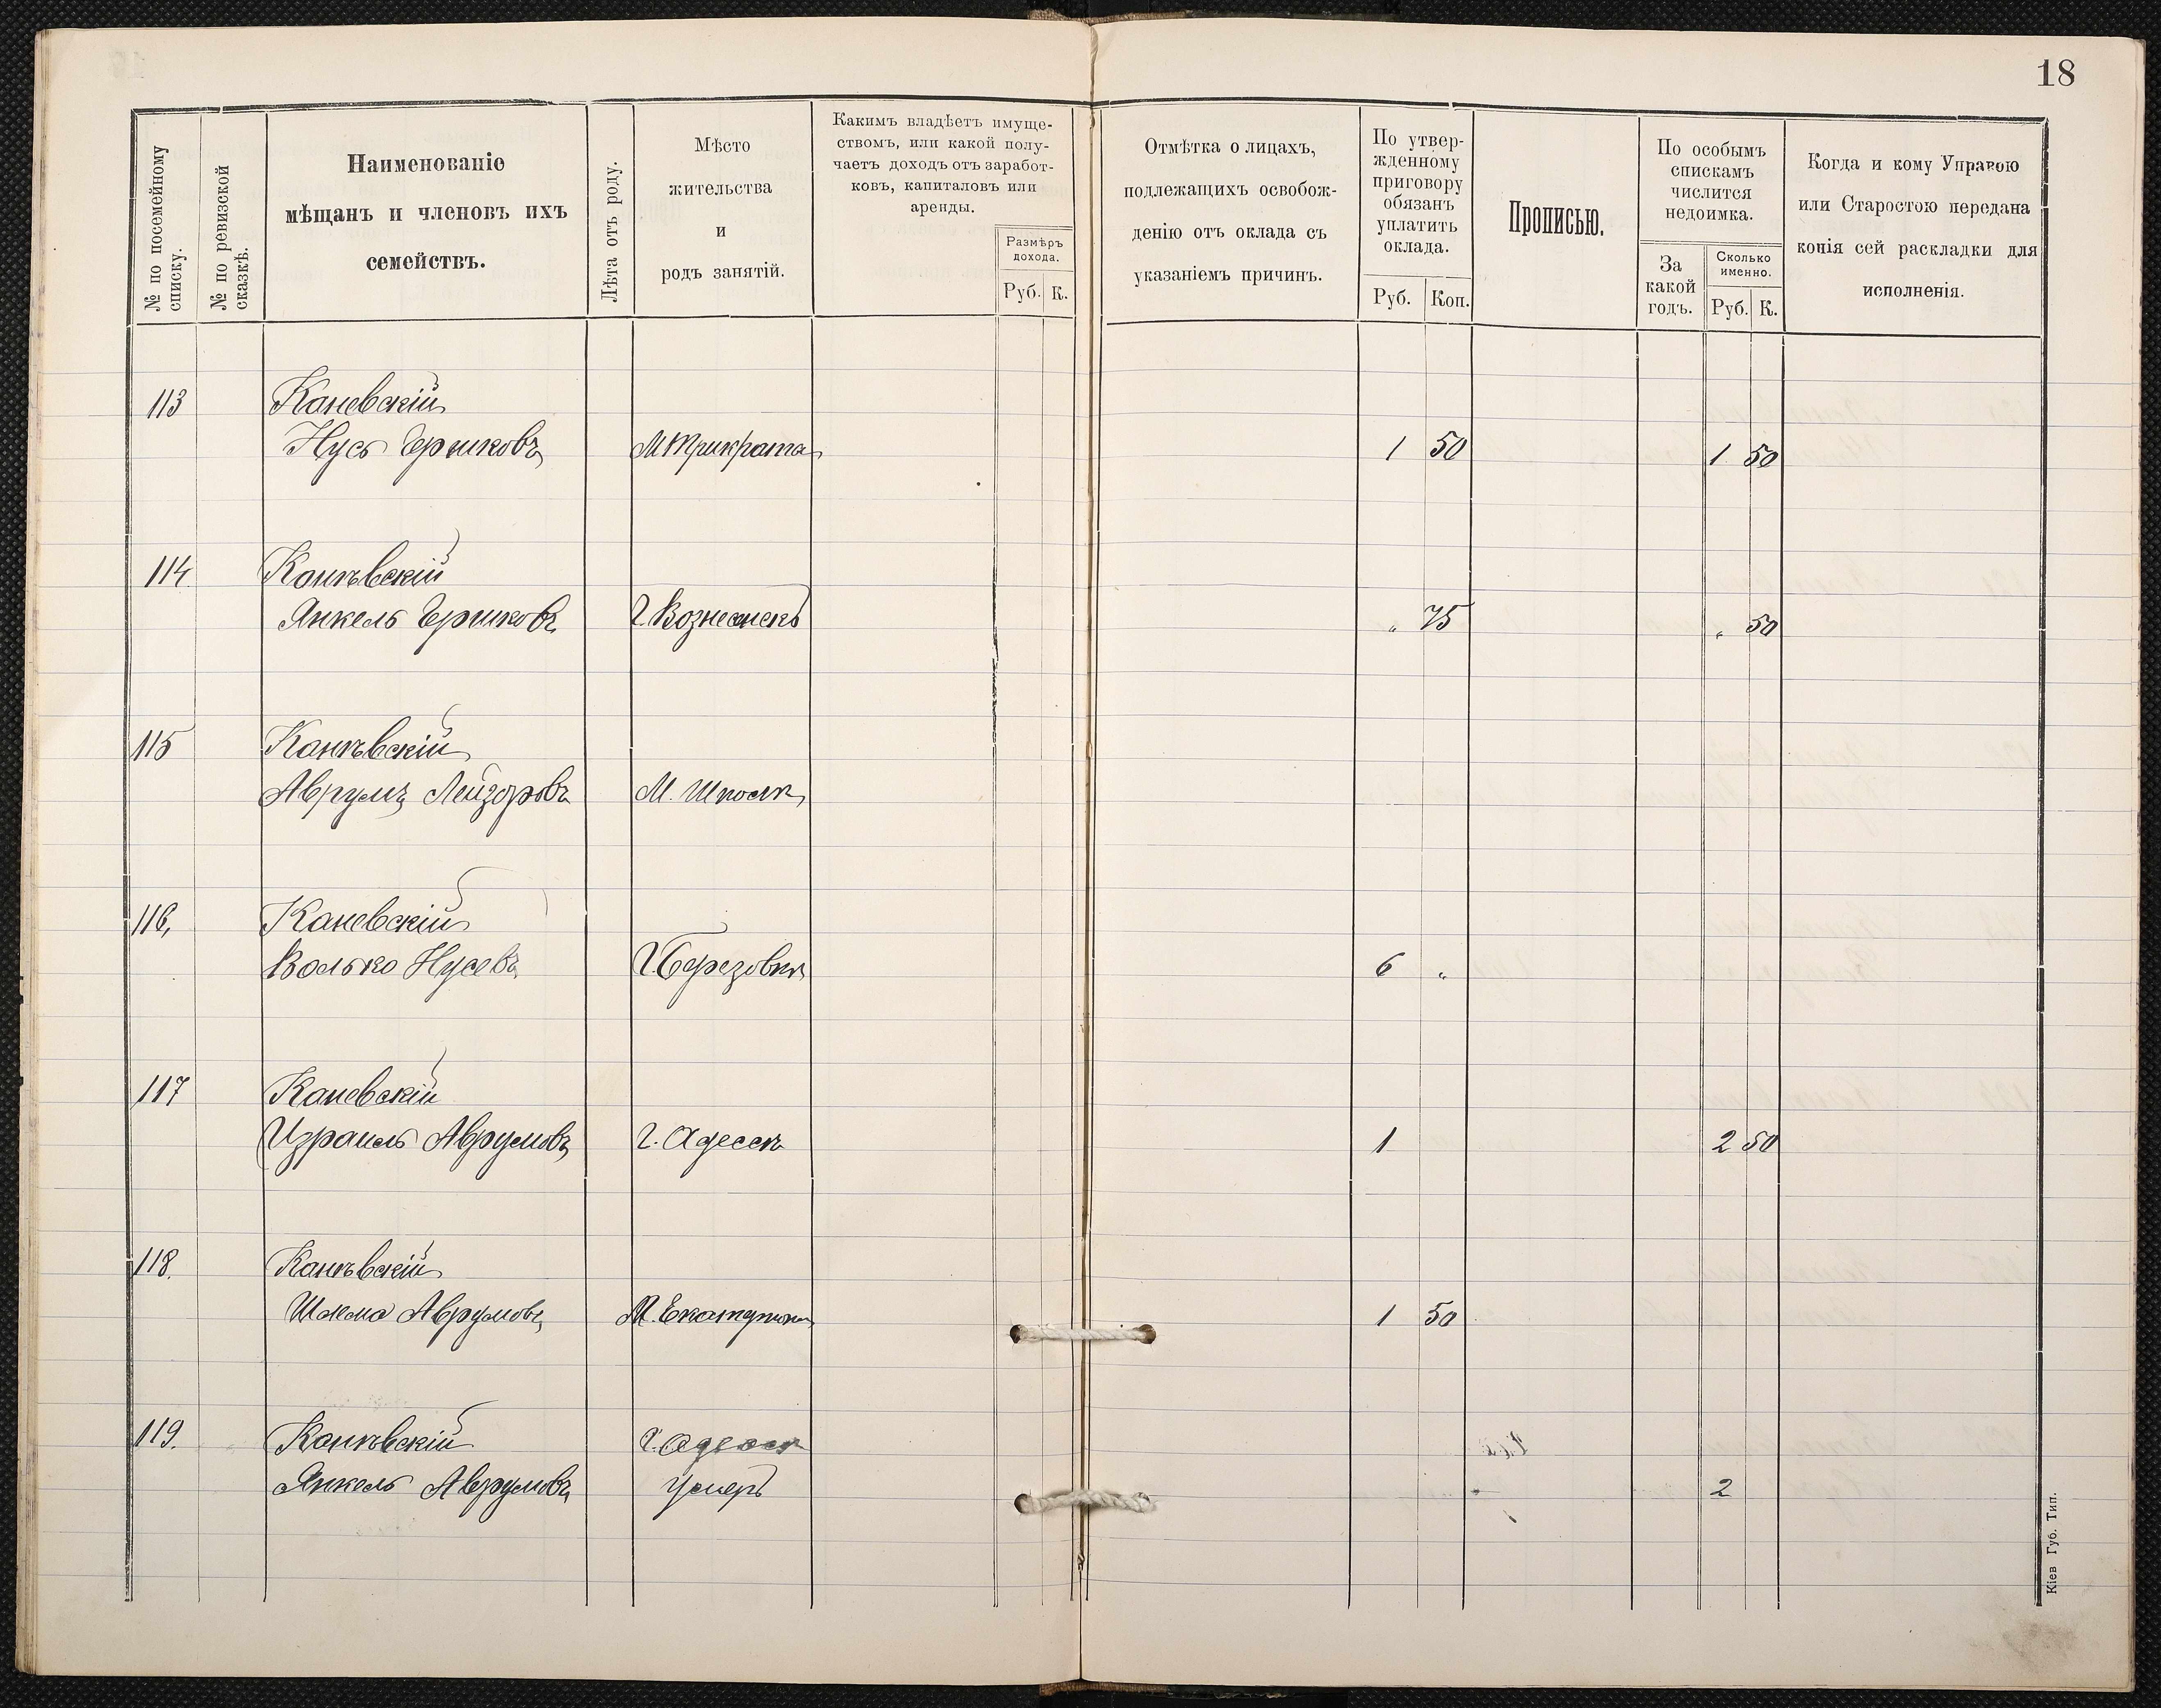 18
№ по посемейному
списку.
№ по ревизской
сказкѣ.
Наименованіе
мѣщанъ и членовъ ихъ
семействъ.
Лѣта отъ роду.
Мѣсто
жительства
и
родъ занятій.
Какимъ владѣетъ имуще-
ствомъ, или какой полу-
чаетъ доходъ отъ заработ-
ковъ, капиталовъ или
аренды.
Размѣръ
дохода.
Руб. К.
Отмѣтка о лицахъ,
подлежащихъ освобож-
денію отъ оклада съ
указаніемъ причинъ.
По утвер-
жденному
приговору
обязанъ
уплатить
оклада.
Руб. Коп.
Прописью.
По особымъ
спискамъ
числится
недоимка.
За
какой
годъ.
Сколько
именно.
Руб. К.
Когда и кому Управою
или Старостою передана
копія сей раскладки для
исполненія.
113 Каневскій
Нусь Гершковъ М Трикрата 1 50 1 50
114. Канѣвскій
Янкель Гершковъ Г. Вознесенскъ " 75 " 50
115 Канѣвскій
Аврумъ Лейзоровъ М. Шпола
116, Каневскій
Волько Нусевъ Г. Березовка 6 "
117 Каневскій
Израиль Аврумовъ Г. Адесса 1 2 50
118. Канѣвскій
Шлема Аврумовъ 1 50
119. Канѣвскій Г. Адесса
Янкель Аврумовъ умеръ 2
Кіев Губ. Тип.